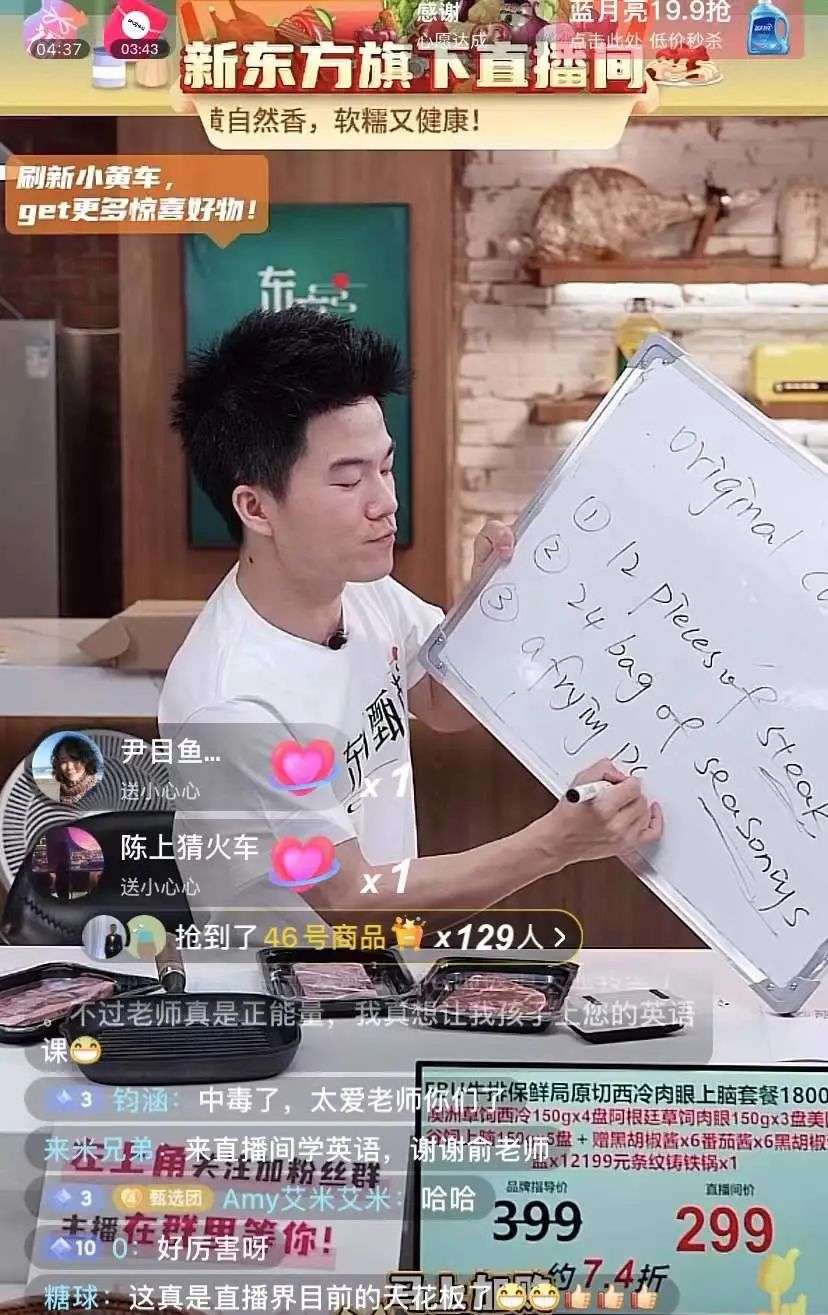 04:37
03:43
感谢
心愿达成
蓝月亮19.9抢
点击此处 低价秒杀
新东方旗下直播间
黄自然香，软糯又健康！
刷新小黄车，
get更多惊喜好物！
东
original
① 12 pieces of steak
② 24 bag of seasonings
③ a frying
甄
尹目鱼...
送小心心
x 1
陈上猜火车
送小心心
x 1
抢到了46号商品 x129人 >
。不过老师真是正能量，我真想让我孩子上您的英语
课😁
3 钧涵：中毒了，太爱老师你们了
来米兄弟：来直播间学英语，谢谢俞老师
3 甄选团 Amy艾米艾米：哈哈
10 0：好厉害呀
糖球：这真是直播界目前的天花板了😁😁👍👍👍
左上角关注加粉丝群
主播在群里等你！
牛排保鲜局原切西冷肉眼上脑套餐1800
澳洲草饲西冷150gx4盘阿根廷草饲肉眼150gx3盘美
谷饲上脑150gx5盘 + 赠黑胡椒酱x6番茄酱x6黑胡椒
盐x12199元条纹铸铁锅x1
品牌指导价
399
直播间价
299
约7.4折